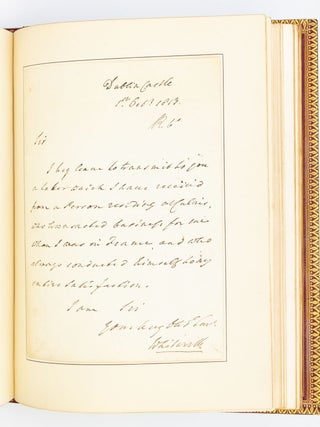 Dublin Castle
1st Oct 1813.
Sir
I beg leave to transmit to you
a letter which I have received
from a Person residing at Calais,
who transacted business for me
when I was in France and who
always conducted himself to my
entire satisfaction.
I am Sir
Your
Whitworth